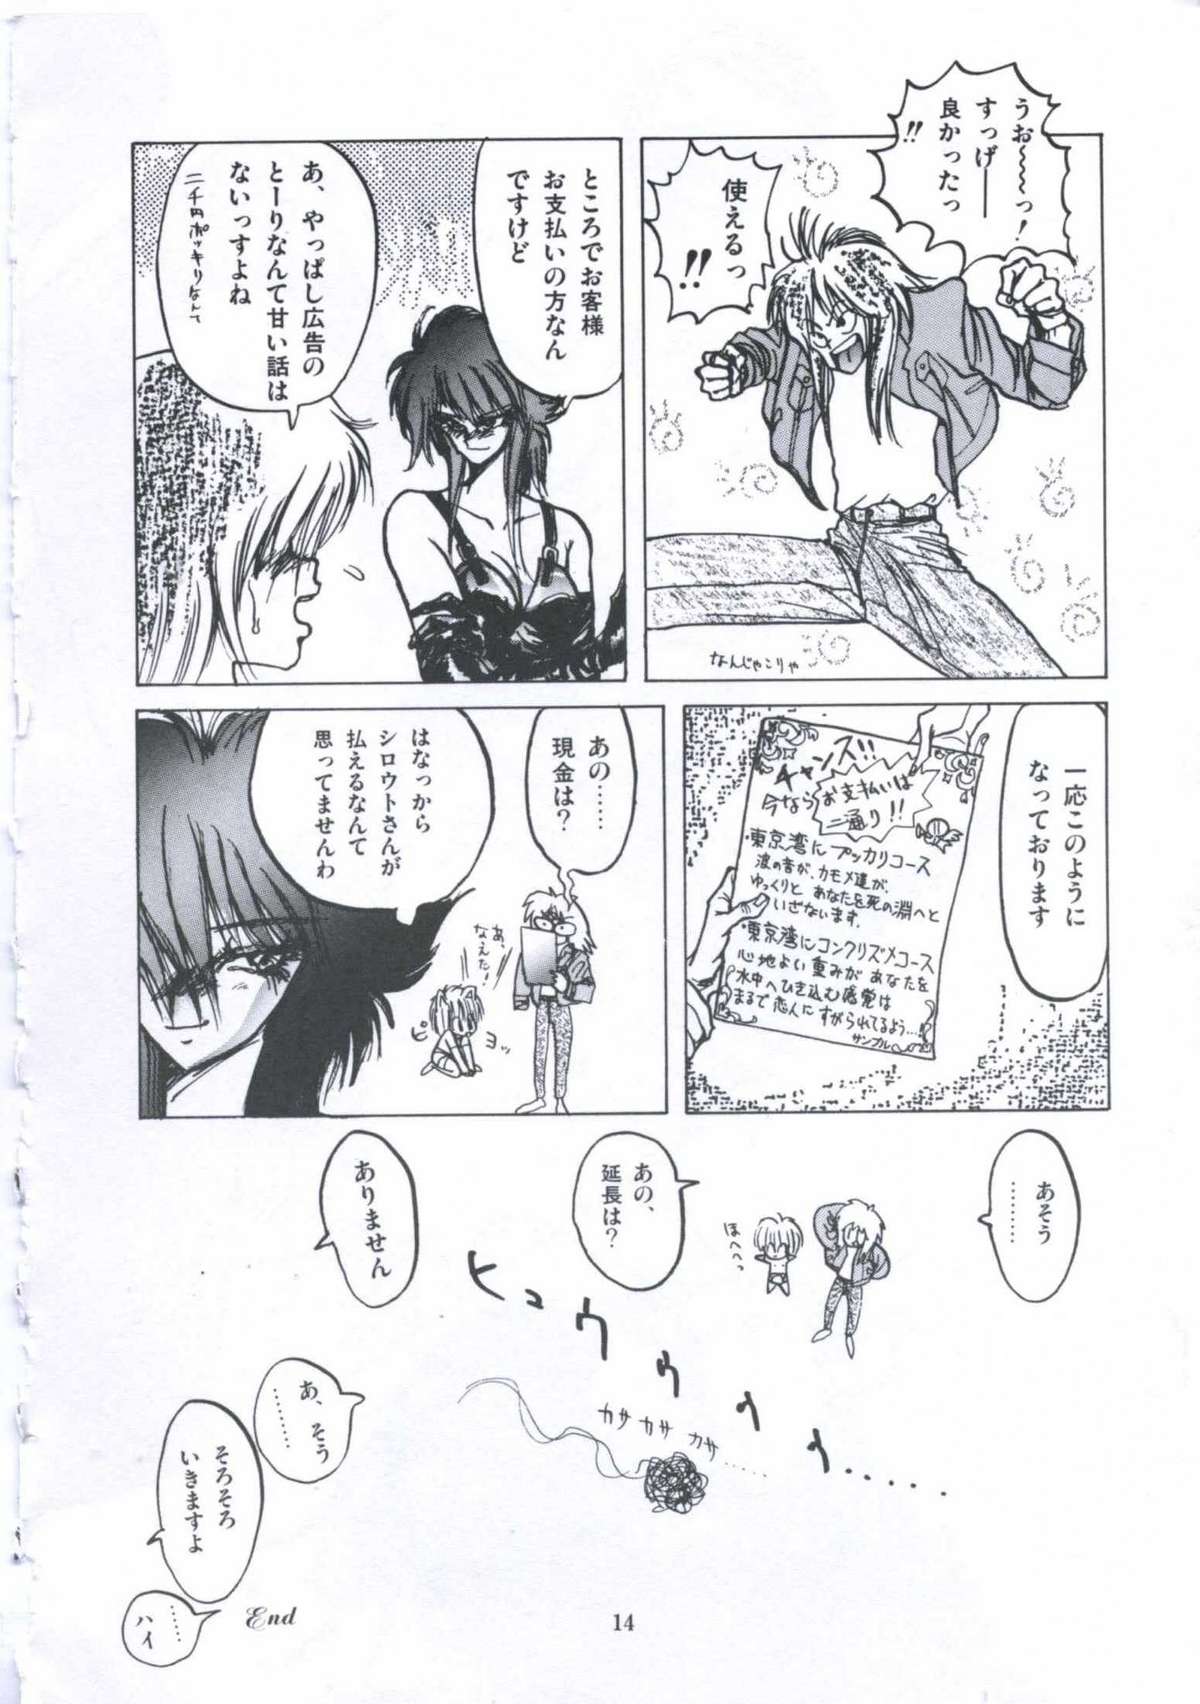 うお〜〜〜っ!
すっげ――
良かったっ
!!
使えるっ
!!
なんじゃこりゃ
ところでお客様
お支払いの方なん
ですけど
あ、やっぱし広告の
とーりなんて甘い話は
ないっすよね
二千円ポッキリなんて
一応このように
なっております
チャンス!!
今なら
お支払いは
二通り!!
・東京湾にプッカリコース
波の音が、カモメ達が、
ゆっくりと あなたを死の淵へと
いざないます。
・東京湾にコンクリズメコース
心地よい重みが あなたを
水中へひき込む感覚は
まるで恋人にすがられてるよう…
サンプル
あの……
現金は?
あ、
なえた!
ピョッ
はなっから
シロウトさんが
払えるなんて
思ってませんわ
あそう
………
ほへへっ
あの、
延長は?
ありません
ヒュウゥゥゥ……
カサカサカサ……
あ、そう
……
そろそろ
いきますよ
……
ハイ
End
14